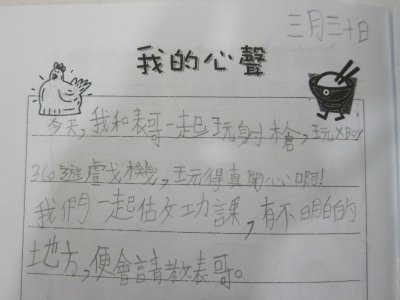 三月三十日
我的心聲
今天,我和表哥一起玩身寸槍,玩XBOX
360遊戲機,玩得真開心啊!
我們一起做功課,有不明白的
地方,便會請教表哥。